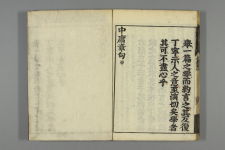 舉一篇之要而約言之其反復
丁寧示人之意至深切矣學者
其可不盡心乎
中庸章句